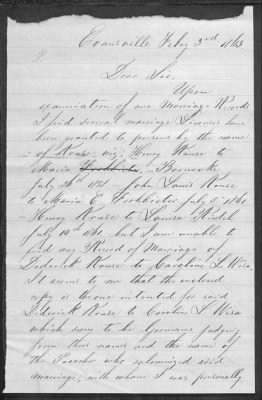 Evansville Feby 3rd 1863
Dear Sir.
Upon
examination of our Marriage Records
I find several marriage Licenses have
been granted to persons by the name
of Kouse; viz: Henry Kouse to
Maria Bornecke
July 26th 1851. John Louis Kouse
to Maria E. Forthkister July 5th 1860
Henry Kouse to Laura Riedel
July 10th 1860, but I am unable to
find any Record of Marriage of
Diderick Kouse to Caroline L Wisa
It seems to me that the enclosed
copy is the one intended for said
Diderick Kouse to Caroline L Wisa
which seem to be Germans judging
from their names and the name of
the Preacher who solemnized said
marriage, with whom I was personally